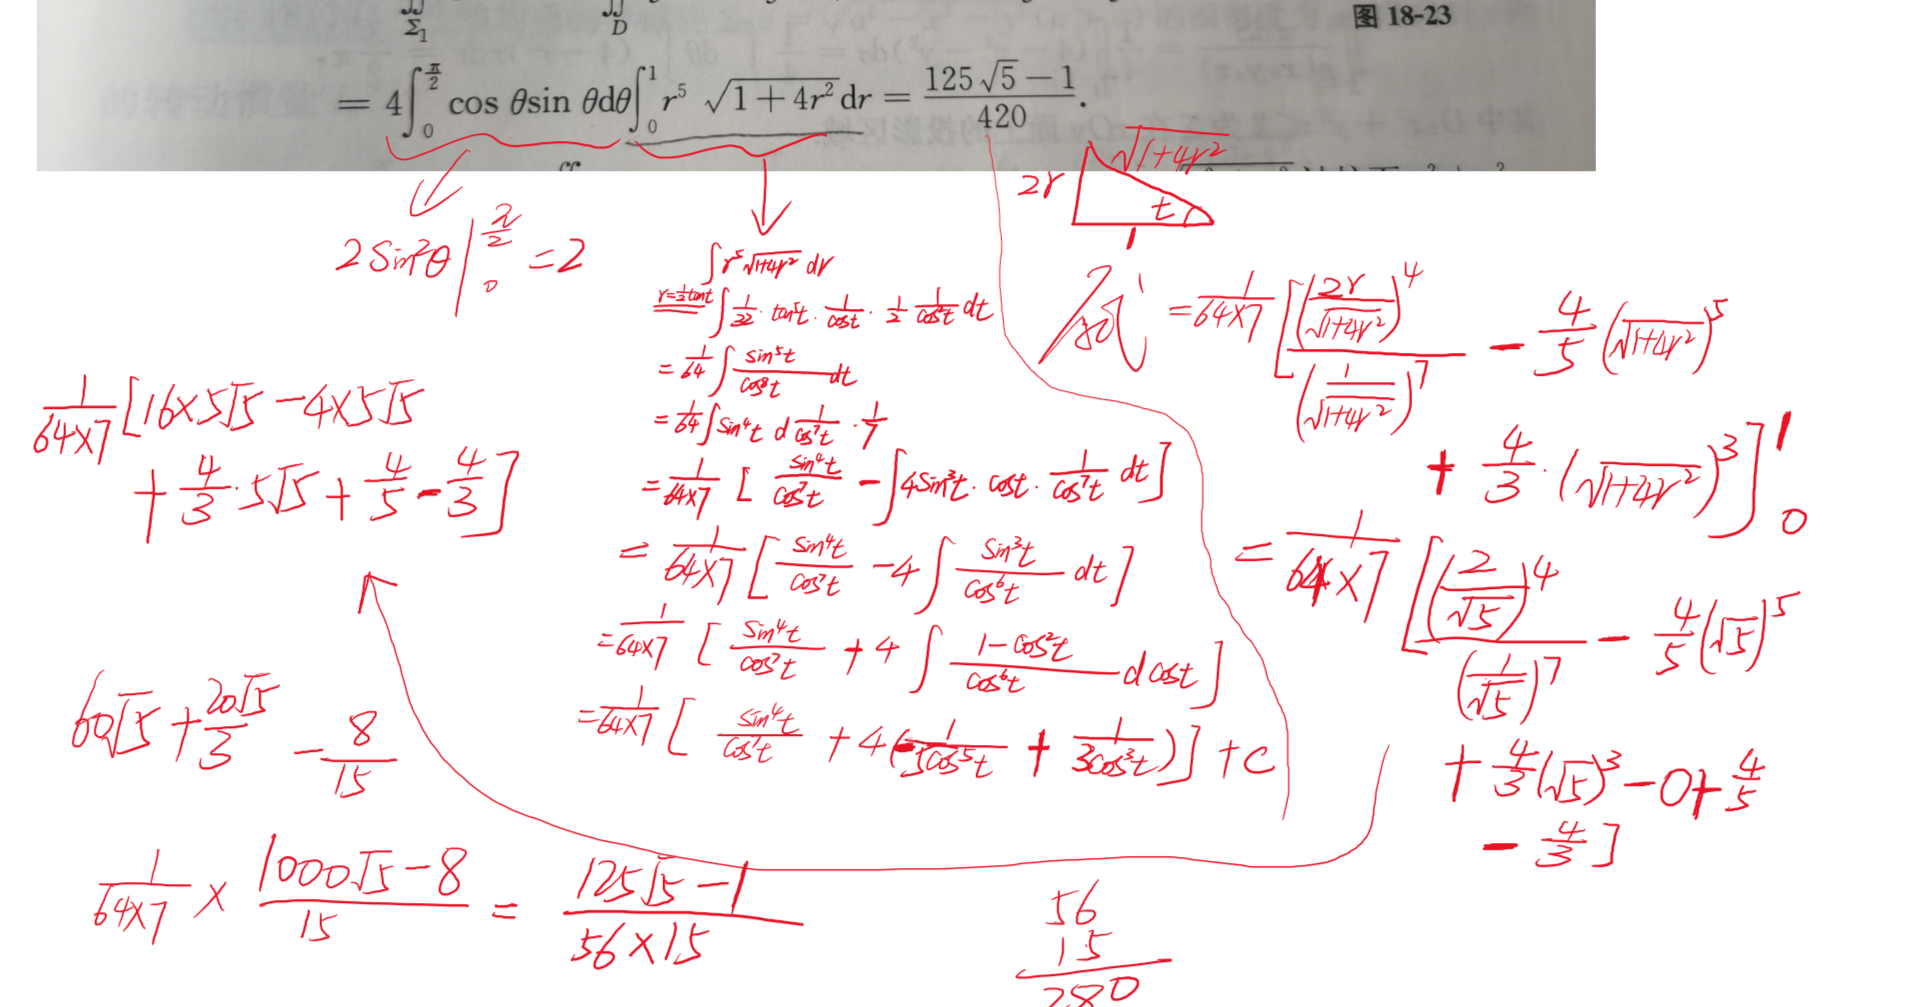 ∬ ∬
Σ₁ D
图 18-23
= 4∫₀^{π/2} cos θsin θdθ∫₀¹ r⁵ √(1+4r²) dr = (125√5−1)/420.
2sin²θ |₀^{π/2} = 2
∫r⁵√(1+4r²) dr
r=½tant ∫ 1/32 · tan⁵t · 1/cost · 1/2 · 1/cos²t dt
= 1/64 ∫ sin⁵t/cos⁸t dt
= 1/64 ∫ sin⁴t d 1/cos⁷t · 1/7
= 1/(64×7) [ sin⁴t/cos⁷t − ∫4sin³t · cost · 1/cos⁷t dt ]
= 1/(64×7) [ sin⁴t/cos⁷t − 4∫ sin³t/cos⁶t dt ]
= 1/(64×7) [ sin⁴t/cos⁷t + 4∫ (1−cos²t)/cos⁶t dcost ]
= 1/(64×7) [ sin⁴t/cos⁷t + 4(−1/(5cos⁵t) + 1/(3cos³t)) ] + C
√(1+4r²)
2r
t
1
原式 = 1/(64×7) [ (2r/√(1+4r²))⁴ / (1/√(1+4r²))⁷ − 4/5 (√(1+4r²))⁵
+ 4/3 · (√(1+4r²))³ ]₀¹
= 1/(64×7) [ (2/√5)⁴ / (1/√5)⁷ − 4/5 (√5)⁵
+ 4/3 (√5)³ − 0 + 4/5
− 4/3 ]
1/(64×7) [16×5√5 − 4×5√5
+ 4/3 · 5√5 + 4/5 − 4/3 ]
60√5 + 20√5/3 − 8/15
1/(64×7) × (1000√5−8)/15 = (125√5−1)/(56×15)
56
15
280